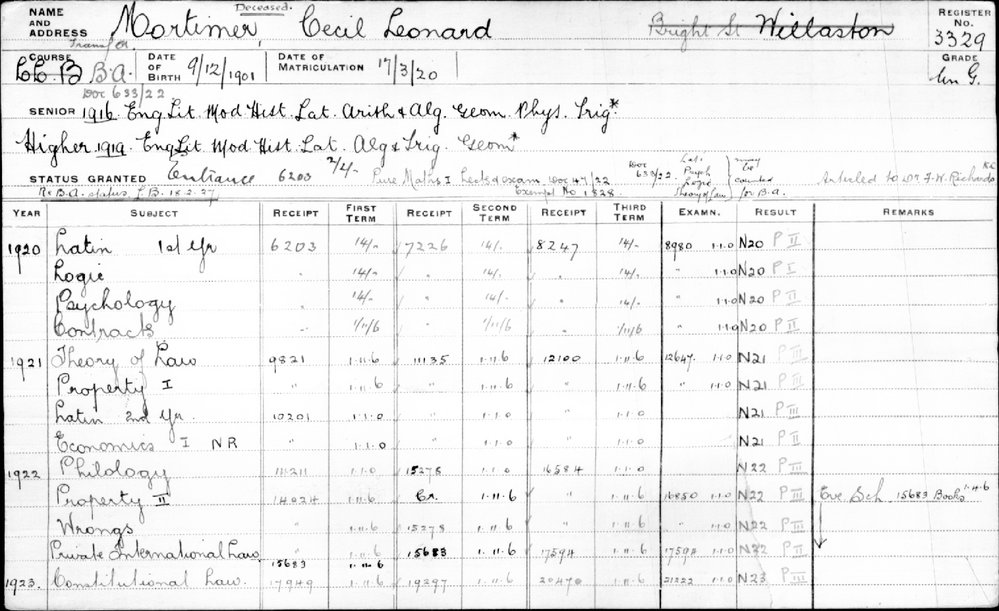 NAME AND ADDRESS Deceased. Mortimer, Cecil Leonard Bright St Willaston REGISTER No. 3329
Transf or
COURSE LL.B B.A. DATE OF BIRTH 9/12/1901 DATE OF MATRICULATION 17/3/20 GRADE Un G.
Doc 633/22
SENIOR 1916 Eng Lit. Mod Hist. Lat. Arith & Alg. Geom. Phys. Trig*
Higher 1919 Eng Lit. Mod Hist. Lat. Alg & Trig. Geom*
STATUS GRANTED Entrance 6203 2/4- Pure Maths I Lects & exam Doc 47/22 Exempt No 1828 Doc 633/22 Lat. Psych Logic Theory of Law may be counted for B.A. Articled to F. W. Richards
Re B.A. status L.B. 18.2.27
YEAR SUBJECT RECEIPT FIRST TERM RECEIPT SECOND TERM RECEIPT THIRD TERM EXAMN. RESULT REMARKS
1920 Latin 1st Yr 6203 14/- 7226 14/- 8247 14/- 8980 1.1.0 N20 P II
Logic " 14/- " 14/- " 14/- " 1.1.0 N20 P I
Psychology " 14/- " 14/- " 14/- " 1.1.0 N20 P II
Contracts " 1/11/6 " 1/11/6 " 1/11/6 " 1.1.0 N20 P II
1921 Theory of Law 9821 1.11.6 11135 1.11.6 12100 1.11.6 12647 1.1.0 N21 P III
Property I " 1.11.6 " 1.11.6 " 1.11.6 " 1.1.0 N21 P II
Latin 2nd Yr. 10201 1.1.0 " 1.1.0 " 1.1.0 N21 P III
Economics I NR " 1.1.0 " 1.1.0 " 1.1.0 N21 P II
1922 Philology 1.1.0 15278 1.1.0 16584 1.1.0 N22 P III
Property II 14024 1.11.6 Cr. 1.11.6 " 1.11.6 16850 1.1.0 N22 P III Eve. Sch. 15683 Books 1.4.6
Wrongs " 1.11.6 15278 1.11.6 " 1.11.6 " 1.1.0 N22 P III
Private International Law " 1.11.6 15683 1.11.6 17594 1.11.6 17594 1.1.0 N22 P II
15683 1.11.6
1923. Constitutional Law. 17949 1.11.6 19297 1.11.6 20470 1.11.6 21222 1.1.0 N23 P III